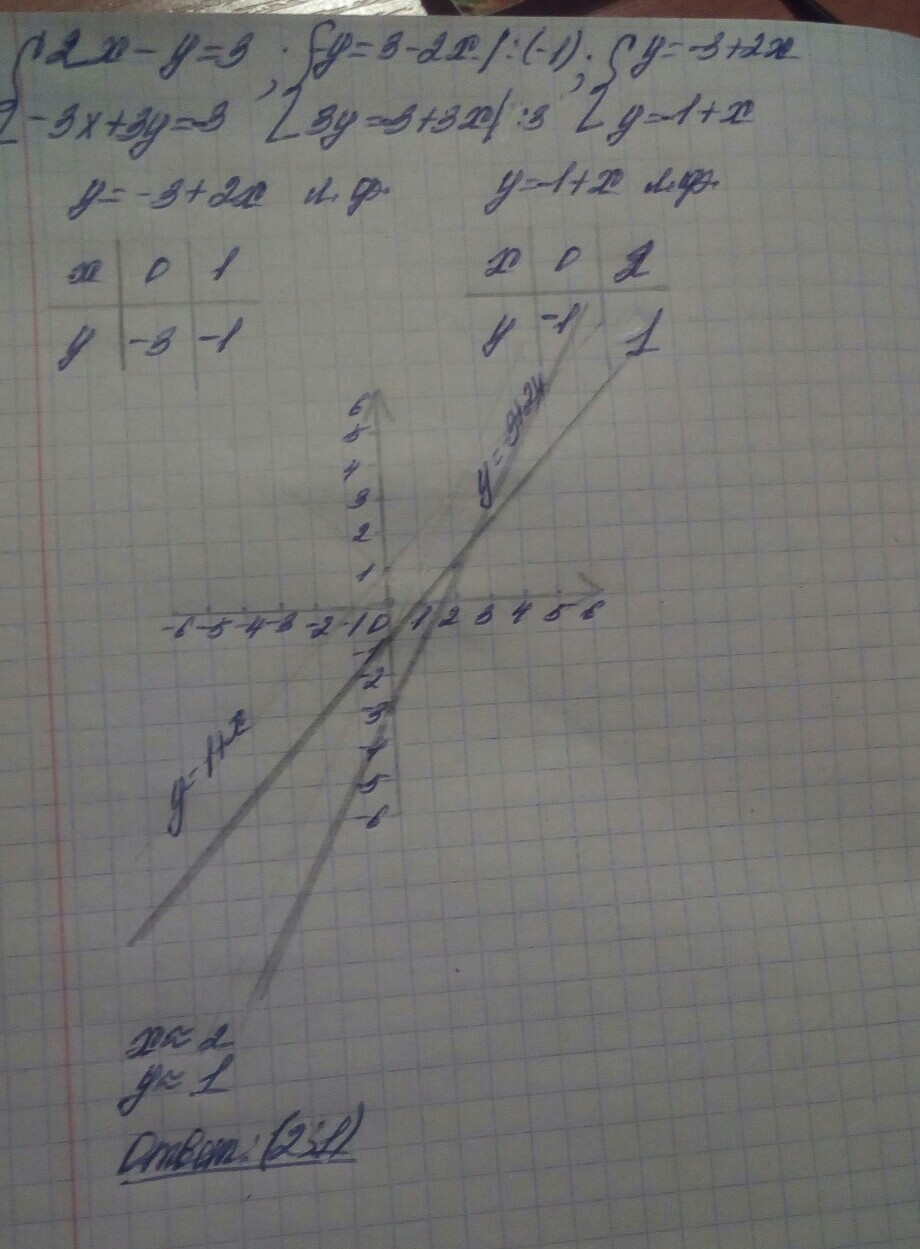 {2x - y = 3 ; {-y = 3 - 2x |:(-1) ; {y = -3 + 2x
{-3x + 3y = -3 {3y = -3 + 3x | :3 {y = -1 + x
y = -3 + 2x л.ф. y = -1 + x л.ф.
x 0 1 x 0 2
y -3 -1 y -1 1
y = -3+2x
6
5
4
3
2
1
-6 -5 -4 -3 -2 -1 0 1 2 3 4 5 6
-1
-2
-3
-4
-5
-6
y = -1+x
x ≈ 2
y ≈ 1
Ответ: (2;1)